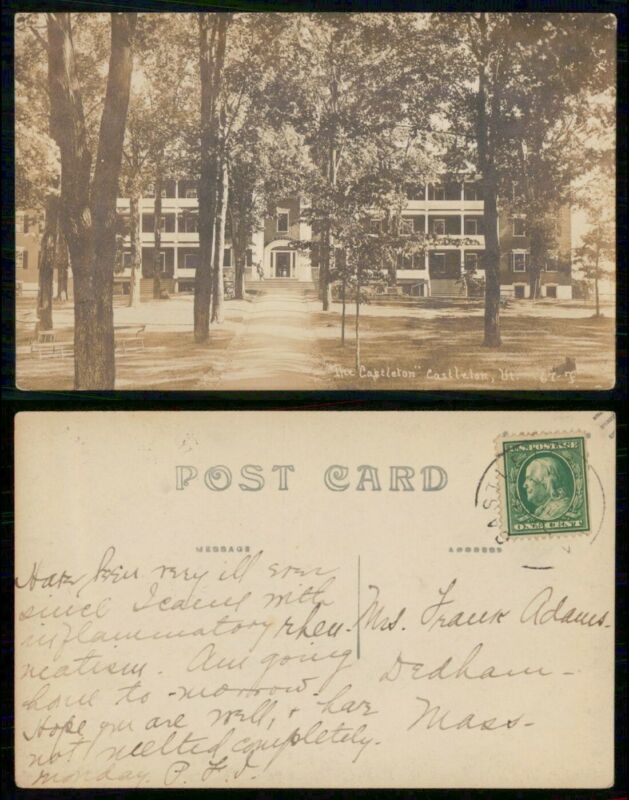 "The Castleton" Castleton, Vt. 67-F
POST CARD
U.S. POSTAGE
ONE CENT
CASTL
MESSAGE
ADDRESS
Have been very ill ever
since I came with
inflammatory rheu-
matism. Am going
home to-morrow.
Hope you are well, & have
not melted completely.
Monday. P.
Mrs. Frank Adams.
Dedham-
Mass-